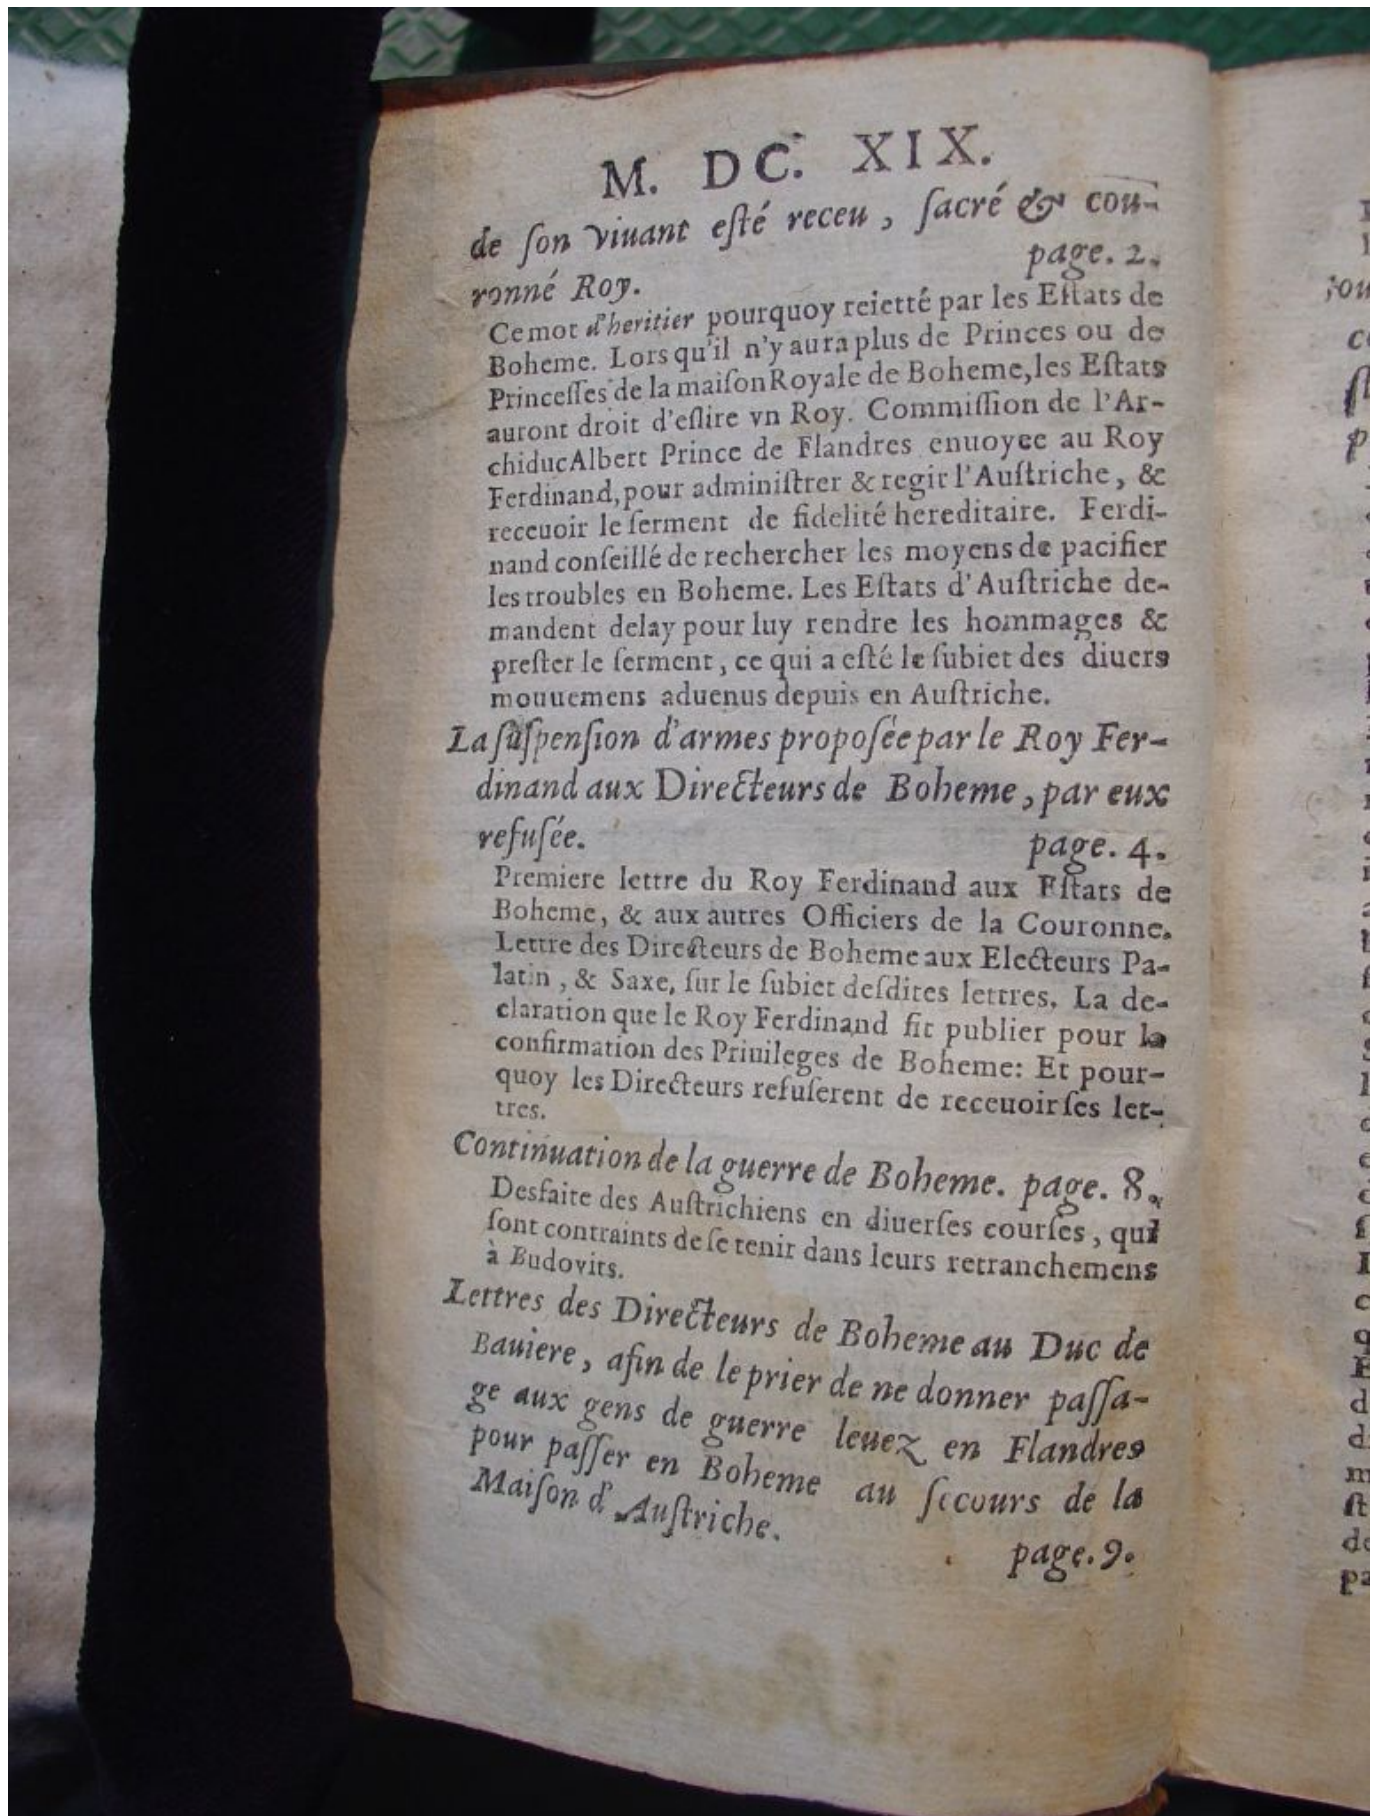 M. DC. XIX.
de ſon viuant eſté receu, ſacré & cou-
ronné Roy. page. 2.
Ce mot d'heritier pourquoy reietté par les Eſtats de
Boheme. Lors qu'il n'y aura plus de Princes ou de
Princeſſes de la maiſon Royale de Boheme, les Eſtats
auront droit d'eſlire vn Roy. Commiſſion de l'Ar-
chiduc Albert Prince de Flandres enuoyee au Roy
Ferdinand, pour adminiſtrer & regir l'Auſtriche, &
receuoir le ſerment de fidelité hereditaire. Ferdi-
nand conſeillé de rechercher les moyens de pacifier
les troubles en Boheme. Les Eſtats d'Auſtriche de-
mandent delay pour luy rendre les hommages &
preſter le ſerment, ce qui a eſté le ſubiet des diuers
mouuemens aduenus depuis en Auſtriche.
La ſuſpenſion d'armes propoſée par le Roy Fer-
dinand aux Directeurs de Boheme, par eux
refuſée. page. 4.
Premiere lettre du Roy Ferdinand aux Eſtats de
Boheme, & aux autres Officiers de la Couronne.
Lettre des Directeurs de Boheme aux Electeurs Pa-
latin, & Saxe, ſur le ſubiet deſdites lettres. La de-
claration que le Roy Ferdinand fit publier pour la
confirmation des Priuileges de Boheme: Et pour-
quoy les Directeurs refuſerent de receuoir ſes let-
tres.
Continuation de la guerre de Boheme. page. 8.
Desfaite des Auſtrichiens en diuerſes courſes, qui
ſont contraints de ſe tenir dans leurs retranchemens
à Budovits.
Lettres des Directeurs de Boheme au Duc de
Bauiere, afin de le prier de ne donner paſſa-
ge aux gens de guerre leuez en Flandres
pour paſſer en Boheme au ſecours de la
Maiſon d'Auſtriche.
page. 9.